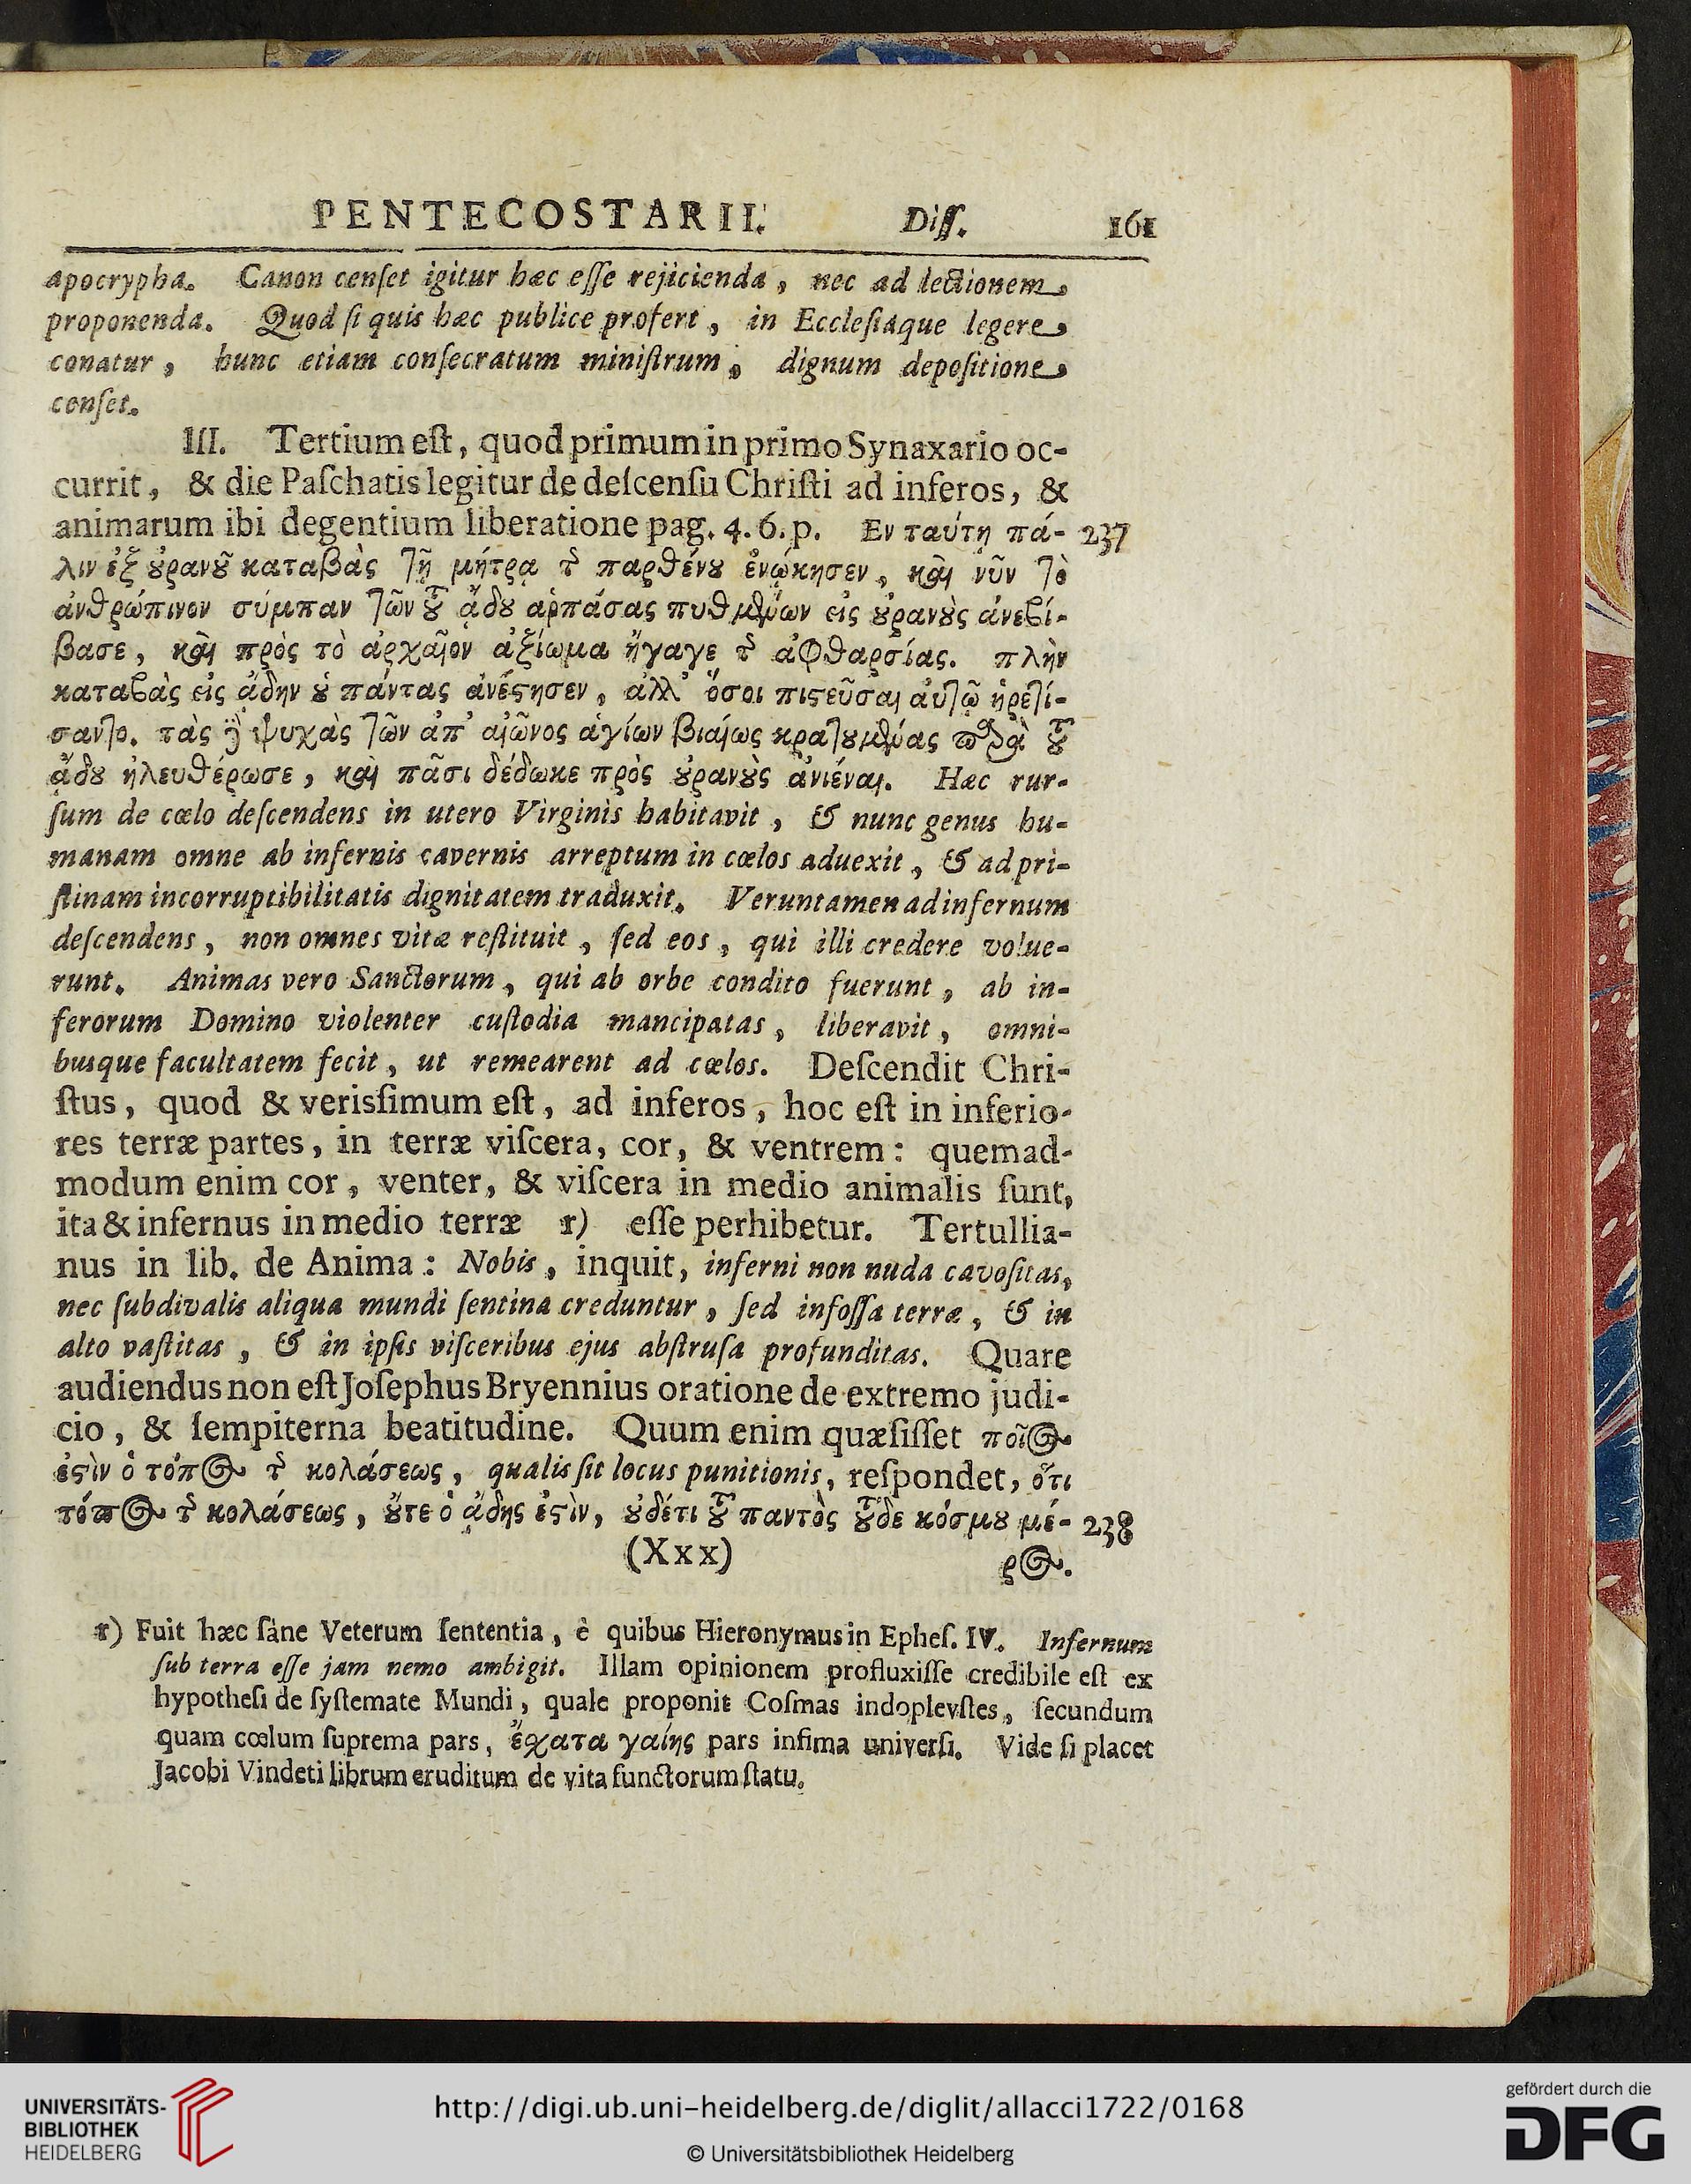 PENTECOSTARII. Diſſ. 161
apocrypha. Canon cenſet igitur hæc eſſe rejicienda, nec ad lectionem
proponenda. Quod ſi quis hæc publice profert, in Eccleſiáque legere
conatur, hunc etiam conſecratum miniſtrum, dignum depoſitione
cenſet.
III. Tertium eſt, quod primum in primo Synaxario oc-
currit, & die Paſchatis legitur de deſcenſu Chriſti ad inferos, &
animarum ibi degentium liberatione pag. 4. 6. p. Εν ταύτη πά- 237
λιν ἐξ ȣ̓ρανȣ͂ καταβὰς τῇ μήτρᾳ τ̃ παρθένȣ ἐνῴκησεν, καὶ νῦν τὸ
ἀνθρώπινον σύμπαν τῶν τȣ͂ ᾅδȣ ἁρπάσας πυθμένων εἰς ȣ̓ρανȣ̀ς ἀνεβί-
βασε, καὶ πρὸς τὸ ἀρχαῖον ἀξίωμα ἤγαγε τ̃ ἀφθαρσίας. πλὴν
καταβὰς εἰς ᾅδην ȣ̓ πάντας ἀνέϛησεν, ἀλλ' ὅσοι πιϛεῦσαι αὐτῷ ᾑρετί-
σαντο. τὰς δὲ ψυχὰς τῶν ἀπ' αἰῶνος ἁγίων βιαίως κρατȣμένας παρὰ τȣ͂
ᾅδȣ ἠλευθέρωσε, καὶ πᾶσι δέδωκε πρὸς ȣ̓ρανȣ̀ς ἀνιέναι. Hæc rur-
ſum de cœlo deſcendens in utero Virginis habitavit, & nunc genus hu-
manam omne ab infernis cavernis arreptum in cœlos aduexit, & ad pri-
ſtinam incorruptibilitatis dignitatem traduxit. Veruntamen ad infernum
deſcendens, non omnes vitæ reſtituit, ſed eos, qui illi credere volue-
runt. Animas vero Sanctorum, qui ab orbe condito fuerunt, ab in-
ferorum Domino violenter cuſtodia mancipatas, liberavit, omni-
busque facultatem fecit, ut remearent ad cœlos. Deſcendit Chri-
ſtus, quod & verisſimum eſt, ad inferos, hoc eſt in inferio-
res terræ partes, in terræ viſcera, cor, & ventrem: quemad-
modum enim cor, venter, & viſcera in medio animalis ſunt,
ita & infernus in medio terræ r) eſſe perhibetur. Tertullia-
nus in lib. de Anima: Nobis, inquit, inferni non nuda cavoſitas,
nec ſubdivalis aliqua mundi ſentina creduntur, ſed infoſſa terræ, & in
alto vaſtitas, & in ipſis viſceribus ejus abſtruſa profunditas. Quare
audiendus non eſt Joſephus Bryennius oratione de extremo judi-
cio, & ſempiterna beatitudine. Quum enim quæſiſſet ποῖος
ἐϛὶν ὁ τόπος τ̃ κολάσεως, qualis ſit locus punitionis, reſpondet, ὅτι
τόπος τ̃ κολάσεως, ȣ̓́τε ὁ ᾅδης ἐϛὶν, ȣ̓δέτι τȣ͂ παντὸς τȣ͂δε κόσμȣ μέ- 238
(Xxx) ρος.
r) Fuit hæc ſàne Veterum ſententia, è quibus Hieronymus in Epheſ. IV. Infernum
ſub terra eſſe jam nemo ambigit. Illam opinionem profluxiſſe credibile eſt ex
hypotheſi de ſyſtemate Mundi, quale proponit Coſmas indoplevſtes, ſecundum
quam cœlum ſuprema pars, ἔσχατα γαίης pars infima univerſi. Vide ſi placet
Jacobi Vindeti librum eruditum de vita functorum ſtatu.
UNIVERSITÄTS-
BIBLIOTHEK
HEIDELBERG
http://digi.ub.uni-heidelberg.de/diglit/allacci1722/0168
© Universitätsbibliothek Heidelberg
gefördert durch die
DFG